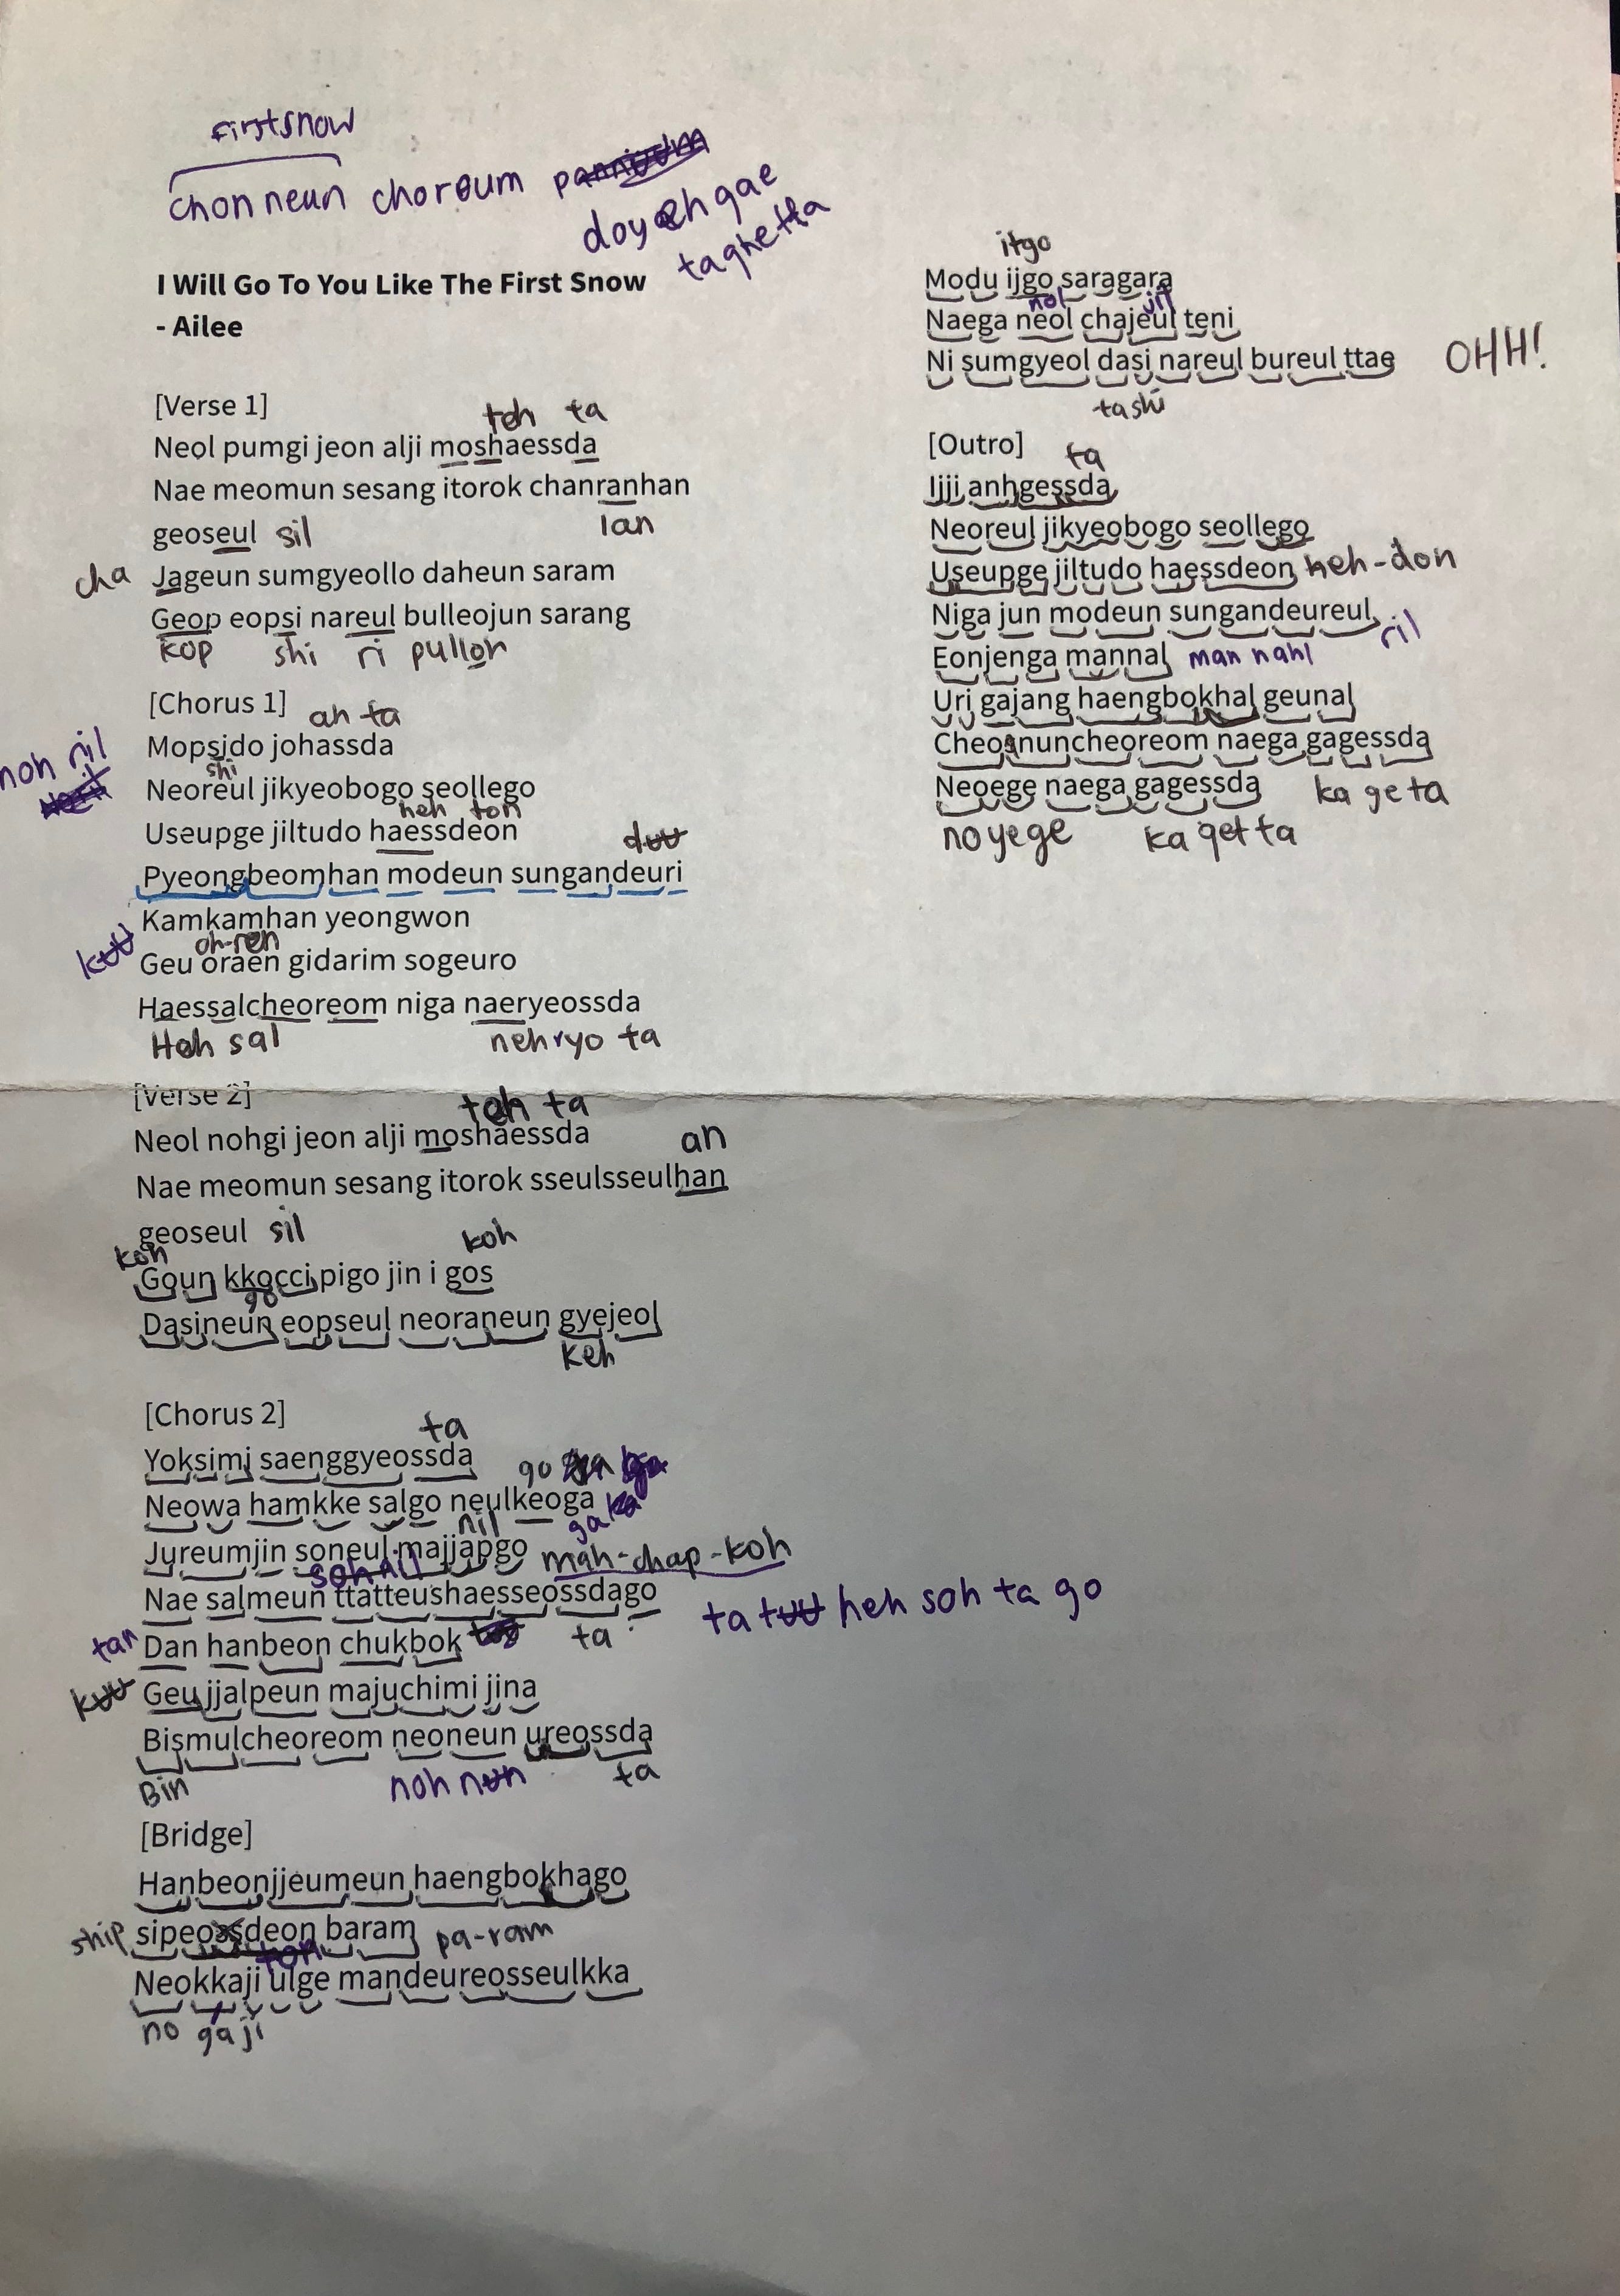 firstsnow
chon neun choreum
doyeh gae
taghetta
I Will Go To You Like The First Snow
- Ailee
[Verse 1]
teh ta
Neol pumgi jeon alji moshaessda
Nae meomun sesang itorok chanranhan
lan
geoseul sil
cha Jageun sumgyeollo daheun saram
Geop eopsi nareul bulleojun sarang
kop shi ri pulloh
[Chorus 1] ah ta
Mopsido johassda
shi
noh ril
Neoreul jikyeobogo seollego
heh ton
Useupge jiltudo haessdeon
duu
Pyeongbeomhan modeun sungandeuri
Kamkamhan yeongwon
oh-ren
kuu Geu oraen gidarim sogeuro
Haessalcheoreom niga naeryeossda
Heh sal nehryo ta
[Verse 2]
teh ta
Neol nohgi jeon alji moshaessda
an
Nae meomun sesang itorok sseulsseulhan
geoseul sil
koh koh
Goun kkocci pigo jin i gos
go
Dasineun eopseul neoraneun gyejeol
keh
[Chorus 2]
ta
Yoksimi saenggyeossda
go
Neowa hamkke salgo neulkeoga
nil gaka
Jureumjin soneul majjapgo mah-chap-koh
soh nil
Nae salmeun ttatteushaesseossdago
ta tuu heh soh ta go
tan Dan hanbeon chukbok ta
kuu Geu jjalpeun majuchimi jina
Bismulcheoreom neoneun ureossda
Bin noh nun ta
[Bridge]
Hanbeonjjeumeun haengbokhago
ship sipeossdeon baram pa-ram
ton
Neokkaji ulge mandeureosseulkka
no gaji
itgo
Modu ijgo saragara
nol jil
Naega neol chajeul teni
Ni sumgyeol dasi nareul bureul ttae OHH!
tashi
[Outro]
ta
Ijji anhgessda
Neoreul jikyeobogo seollego
Useupge jiltudo haessdeon heh-don
Niga jun modeun sungandeureul
ril
Eonjenga mannal man nahl
Uri gajang haengbokhal geunal
Cheosnuncheoreom naega gagessda
Neoege naega gagessda ka ge ta
noyege ka get ta